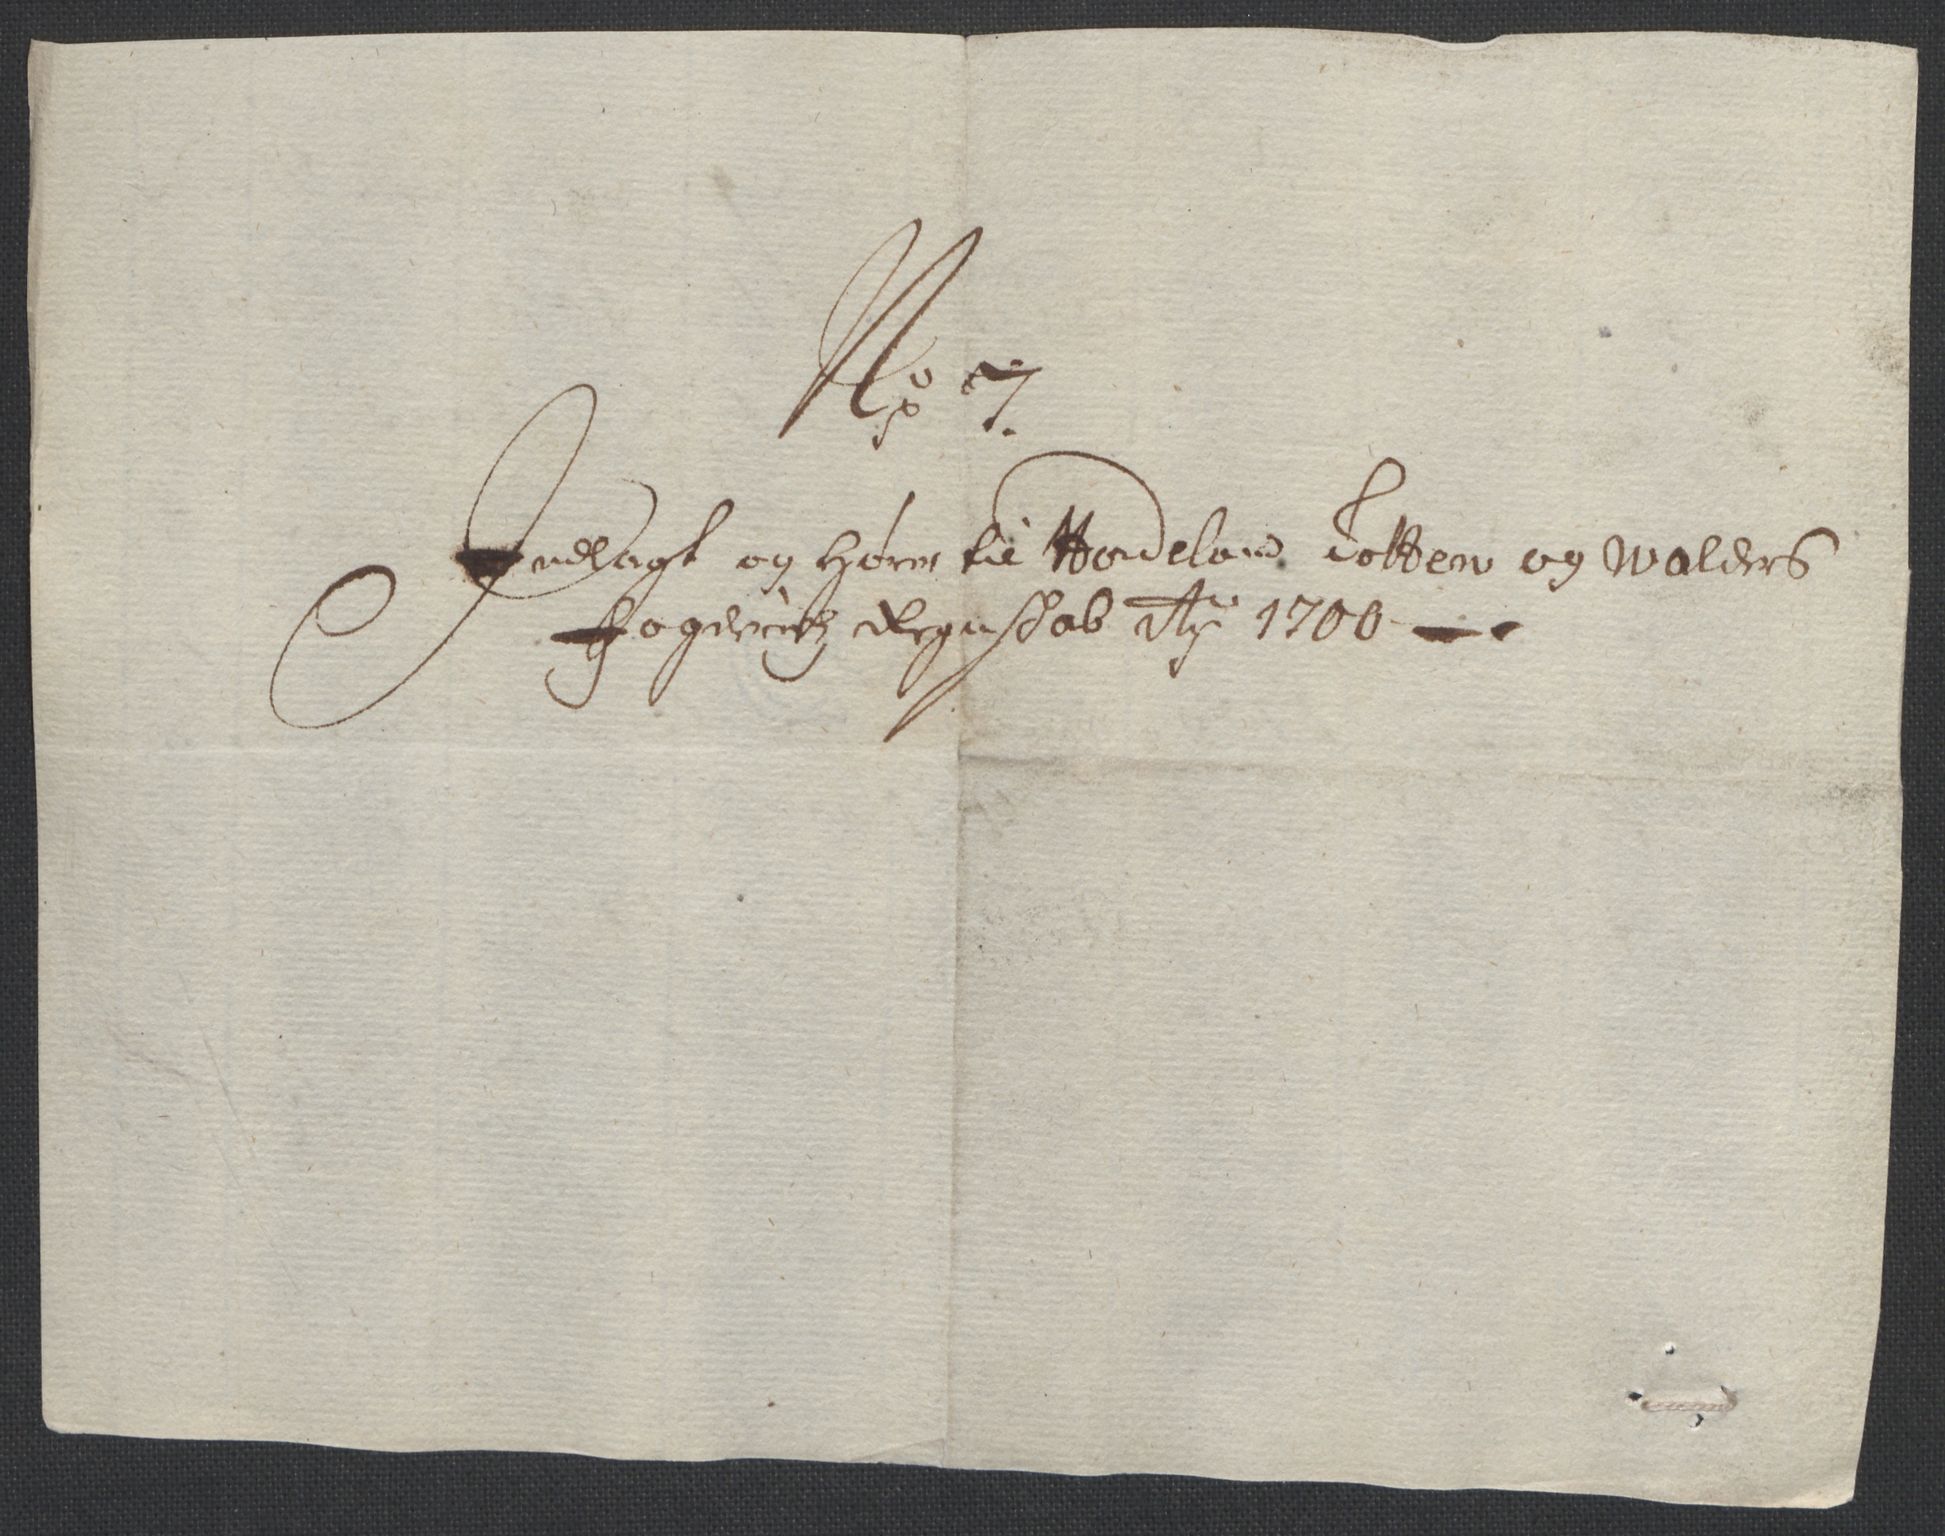 No 7.
Indlagt og hører til Hadeland Totten og Walders
Fogderiis Regnskab Ao 1700